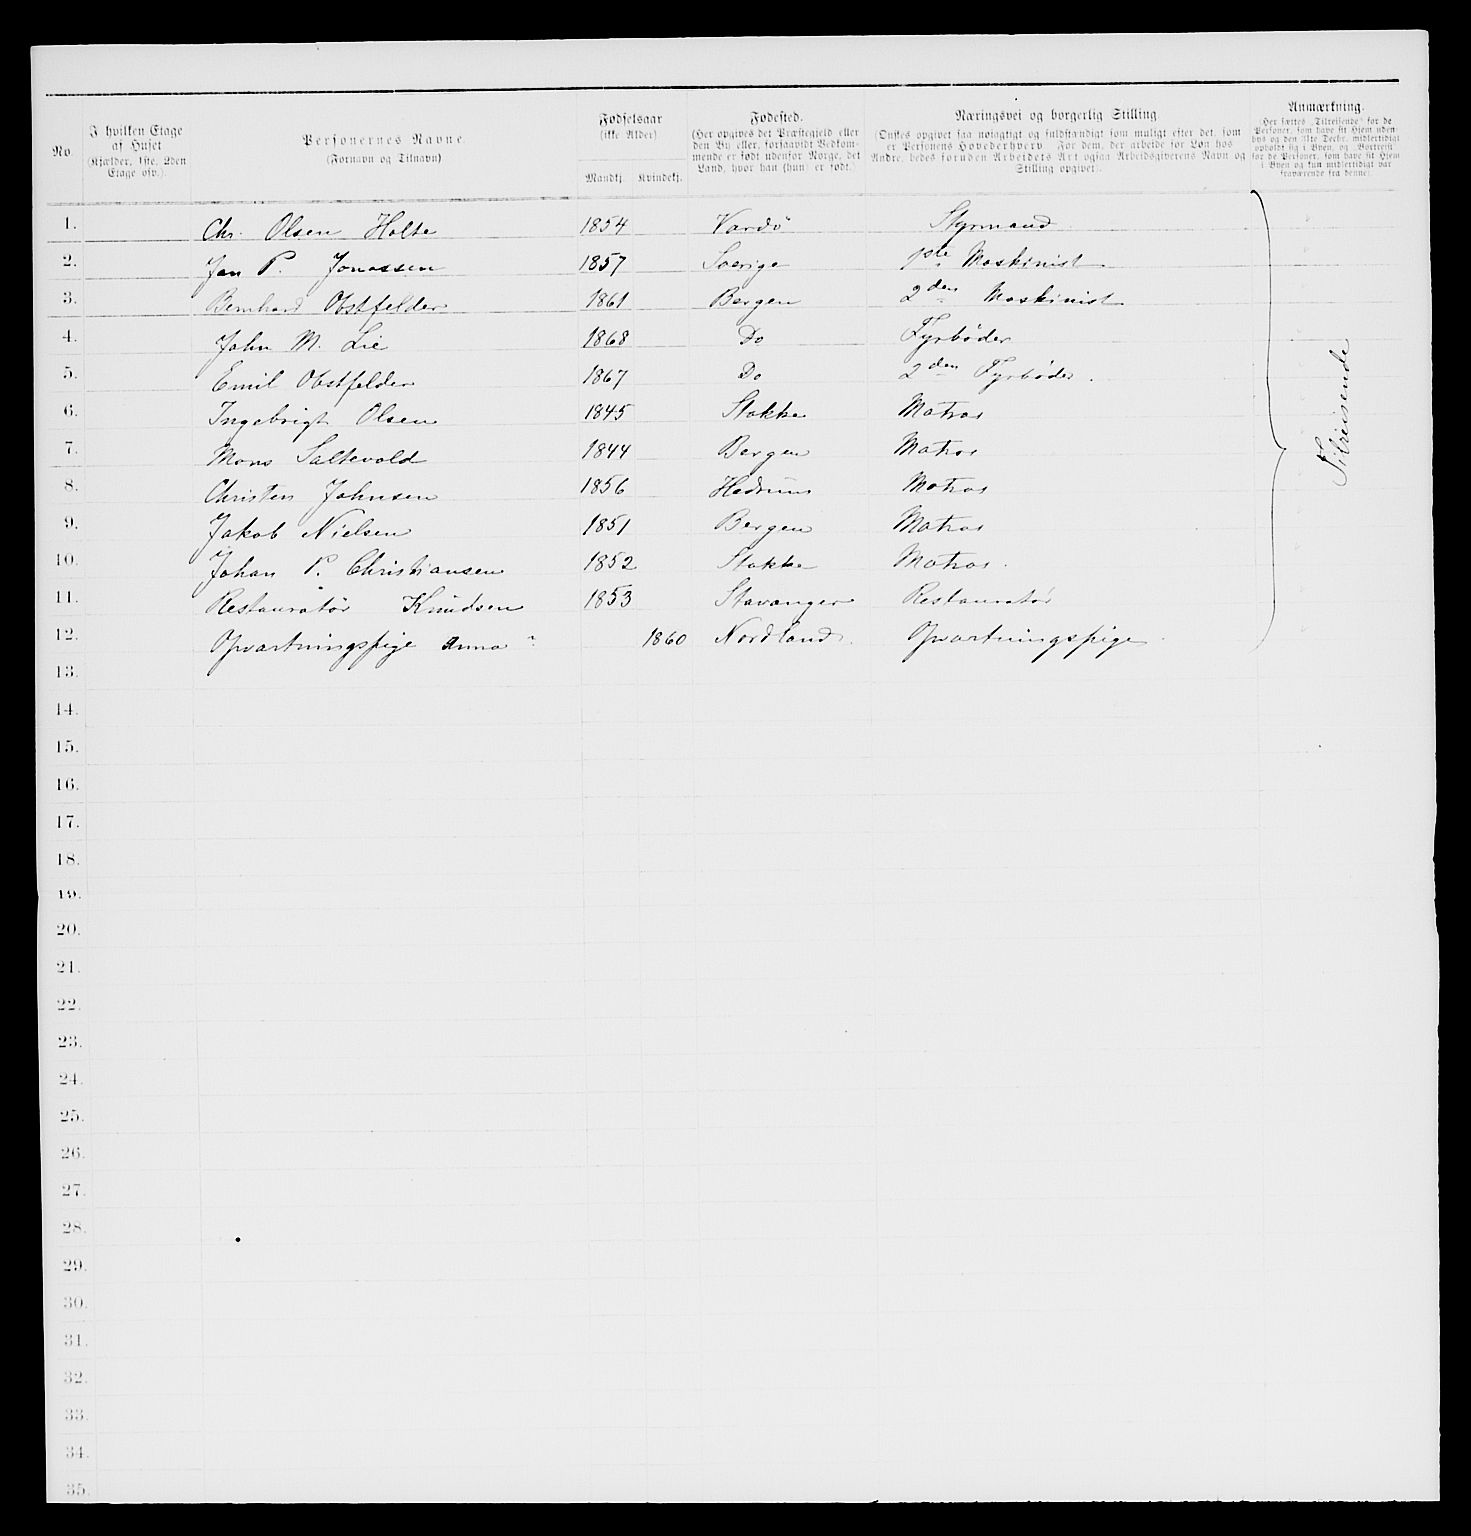 No.
I hvilken Etage
af Huset
(Kjælder, 1ste, 2den
Etage osv.).
Personernes Navne.
(Fornavn og Tilnavn)
Fødselsaar
(ikke Alder)
Mandkj. Kvindekj.
Fødested.
(Her opgives det Præstegjeld eller
den By eller, forsaavidt Vedkom-
mende er født udenfor Norge, det
Land, hvor han (hun) er født.)
Næringsvei og borgerlig Stilling.
(Ønskes opgivet saa nøiagtigt og fuldstændigt som muligt efter det, som
er Personens Hovederhverv. For dem, der arbeide for Løn hos
Andre, bedes foruden Arbeidets Art ogsaa Arbeidsgiverens Navn og
Stilling opgivet).
Anmærkning.
(Her sættes „Tilreisende“ for de
Personer, som have sit Hjem uden-
bys og den 31te Decbr. midlertidigt
opholdt sig i Byen, og „Bortreist“
for de Personer, som have sit Hjem
i Byen og kun midlertidigt var
fraværende fra denne).
1. Chr. Olsen Holte 1854 Vardö Styrmand
2. Jan P. Jonassen 1857 Sverige 1ste Maskinist
3. Bernhard Obstfelder 1861 Bergen 2den Maskinist
4. John M. Lie 1868 Do Fyrböder
5. Emil Obstfelder 1867 Do 2den Fyrböder.
6. Ingebrigt Olsen 1845 Stokke Matros
7. Mons Saltevold 1844 Bergen Matros
8. Christen Johnsen 1856 Hedrum Matros
9. Jakob Nielsen 1851 Bergen Matros
10. Johan P. Christiansen 1852 Stokke Matros.
11. Restauratör Knudsen 1853 Stavanger Restauratör
12. Opvartningspige Anna ? 1860 Nordland. Opvartningspige.
Tilreisende
13.
14.
15.
16.
17.
18.
19.
20.
21.
22.
23.
24.
25.
26.
27.
28.
29.
30.
31.
32.
33.
34.
35.